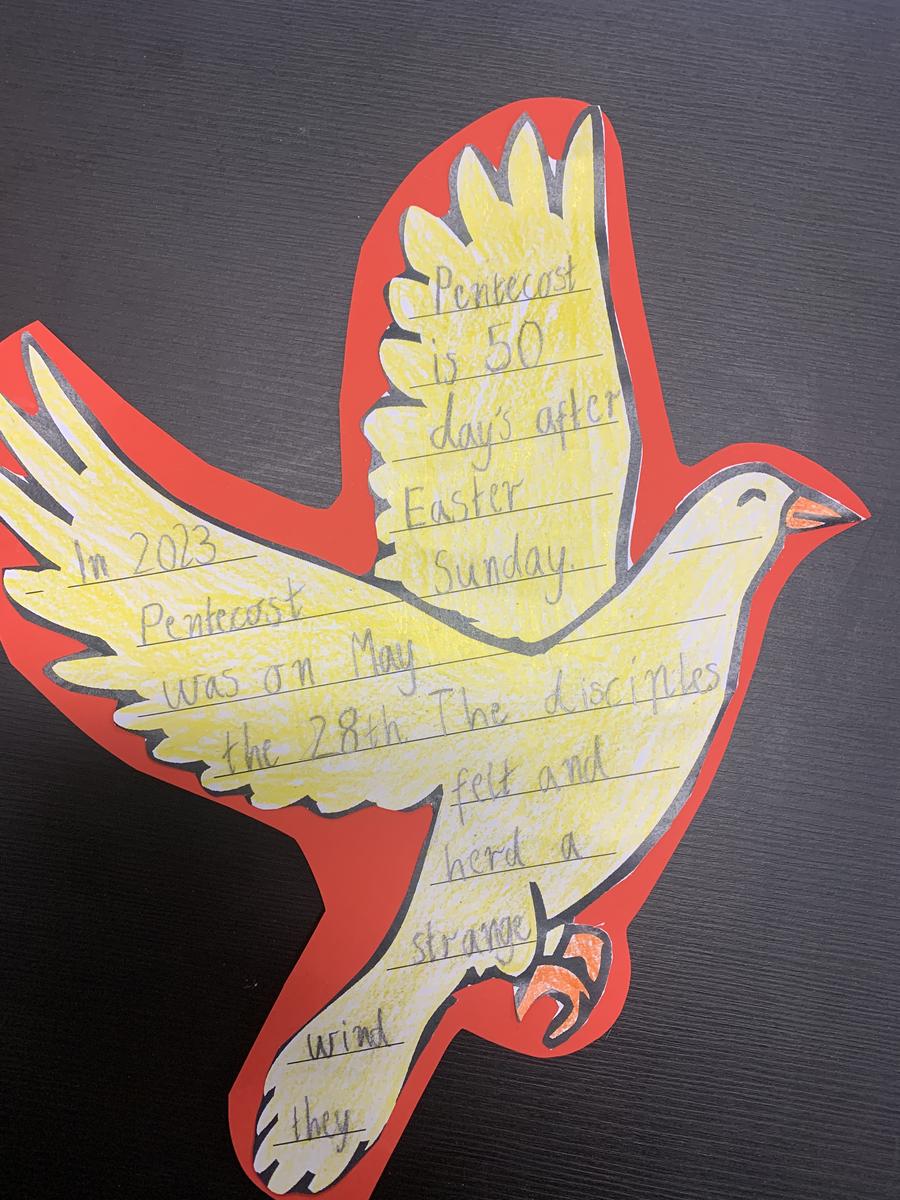 Pentecost
is 50
day's after
Easter
Sunday.
In 2023
Pentecost
was on May
the 28th The disciples
felt and
herd a
strange
wind
they